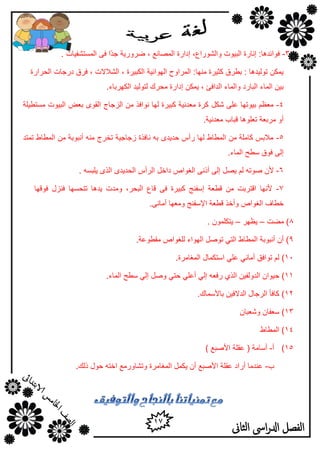 لغة عربية
٣- فوائدها: إنارة البيوت والشوراع، إدارة المصانع ، ضرورية جدًا فى المستشفيات .
يمكن توليدها : بطرق كثيرة منها: المراوح الهوائية الكبيرة ، الشلالات ، فرق درجات الحرارة
بين الماء البارد والماء الدافئ ، يمكن إدارة محرك لتوليد الكهرباء.
٤- معظم بيوتها على شكل كرة معدنية كبيرة لها نوافذ من الزجاج القوى بعض البيوت مستطيلة
أو مربعة تعلوها قباب معدنية.
٥- ملابس كاملة من المطاط لها رأس حديدى به نافذة زجاجية تخرج منه أنبوبة من المطاط تمتد
إلى فوق سطح الماء.
٦- لأن صوته لم يصل إلى أذنى الغواص داخل الرأس الحديدى الذى يلبسه .
٧- لأنها اقتربت من قطعة إسفنج كبيرة فى قاع البحر، ومدت يدها تتحسها فنزل فوقها
خطاف الغواص وأخذ قطعة الإسفنج ومعها أماني.
٨) مضت – يظهر – يتكلمون .
٩) أن أنبوبة المطاط التي توصل الهواء للغواص مقطوعة.
١٠) لم توافق أماني على استكمال المغامرة.
١١) حيوان الدولفين الذي رفعه إلي أعلي حتي وصل إلي سطح الماء.
١٢) كافأ الرجال الدلافين بالأسماك.
١٣) سعفان وشعبان
١٤) المطاط
١٥) أ- أسامة ( عقلة الأصبع )
ب- عندما أراد عقلة الأصبع أن يكمل المغامرة وتشاورمع اخته حول ذلك.
مع تمنياتنا بالنجاح والتوفيق
الصف الخامس الابتدائى
١٧
الفصل الدراسى الثانى